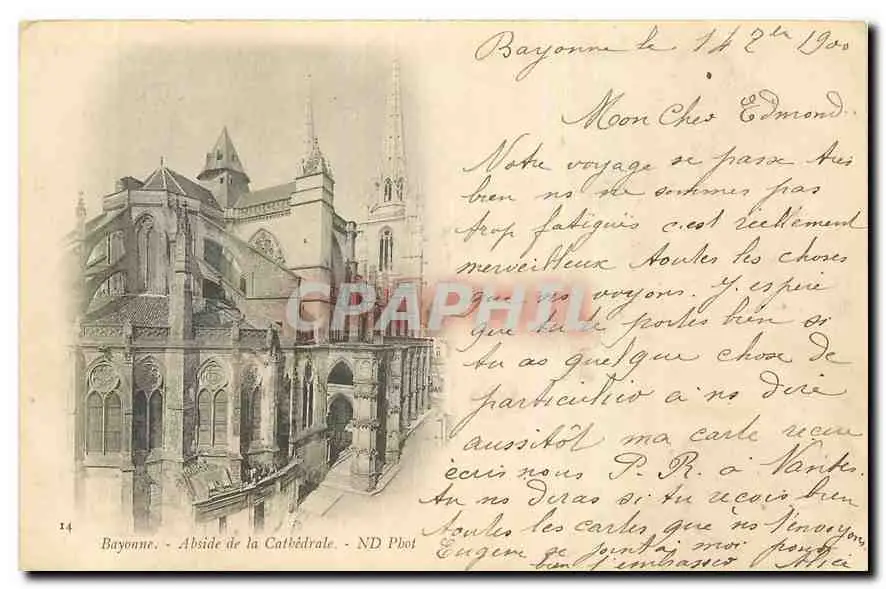 Bayonne le 14 7bre 1900
Mon Cher Edmond.
Notre voyage se passe très
bien ns ne sommes pas
trop fatigués c'est réellement
merveilleux toutes les choses
que ns voyons. J'espère
que tu te portes bien si
tu as quelque chose de
particulier à ns dire
aussitôt ma carte reçue
écris nous P. R. à Nantes.
tu ns diras si tu reçois bien
toutes les cartes que ns t'envoyons
Eugène se joint à moi pour
bien t'embrasser Alice
CPAPHIL
14
Bayonne. - Abside de la Cathédrale. - ND Phot